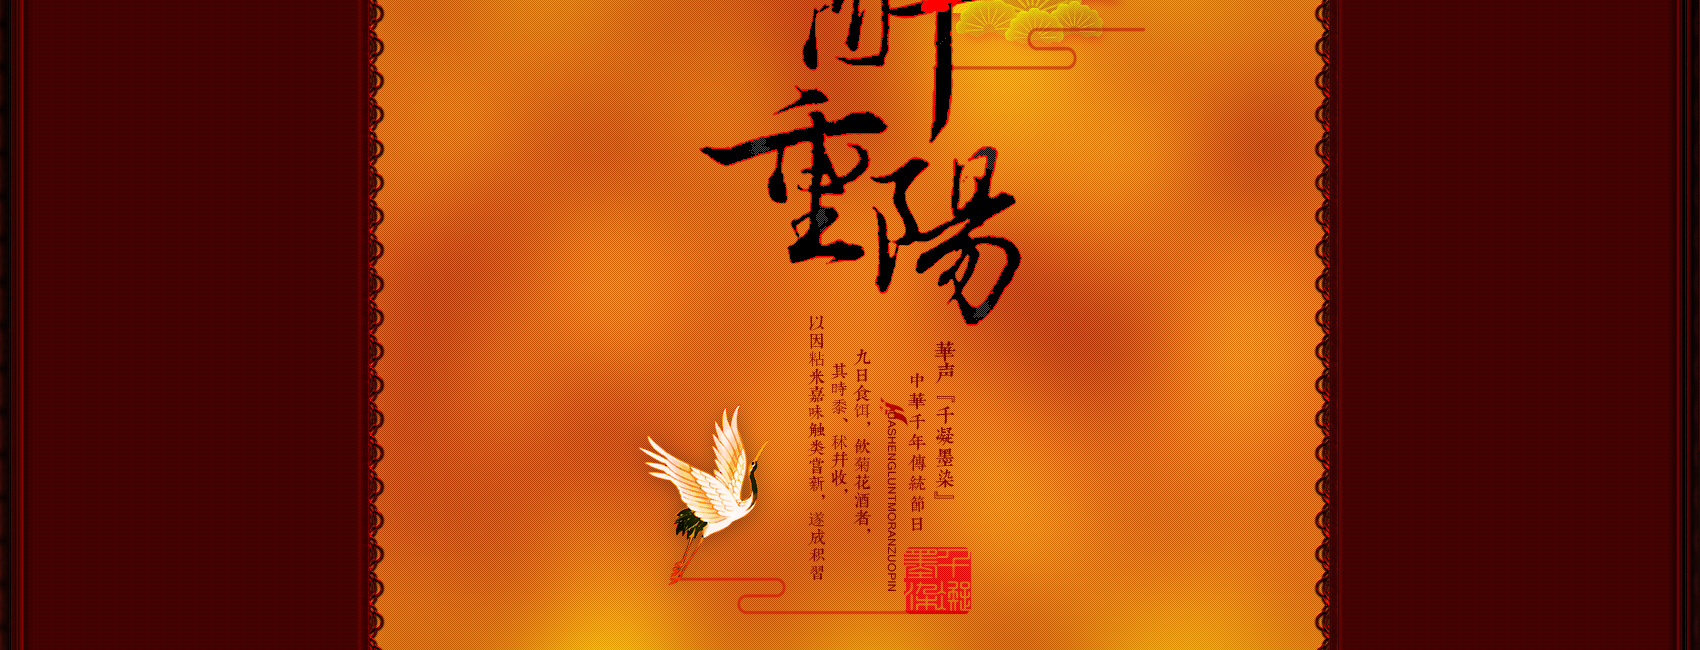 重陽
華声『千凝墨染』
中華千年傳統節日
九日食饵，飲菊花酒者，
其時黍、秫并收，
以因粘米嘉味触类嘗新，遂成积習
千凝墨染